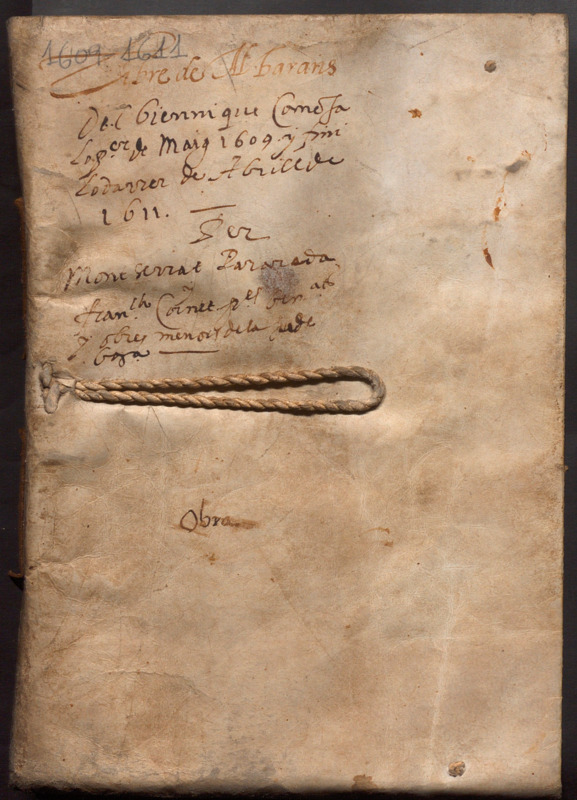 1609 1611
Llibre de Albarans
Del bienni que Comensa
lo p.er de Maig 1609 y fini
lo darrer de Abril de
1611.
Per
Montserrat Pararada
fran.ch Cornet p.es
y obres menors de la sede
Obra